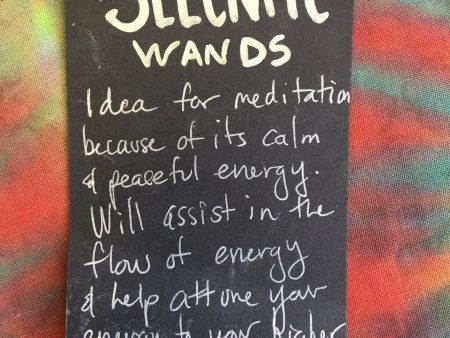 SELENITE
WANDS
Idea for meditation
because of its calm
& peaceful energy.
Will assist in the
flow of energy
& help attune your
energy to your higher